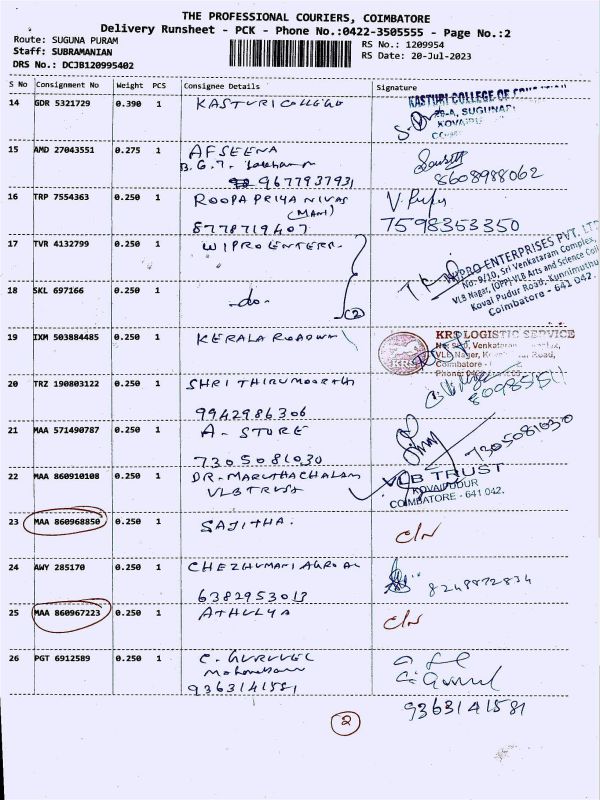 THE PROFESSIONAL COURIERS, COIMBATORE
Delivery Runsheet - PCK - Phone No.:0422-3505555 - Page No.:2
Route: SUGUNA PURAM
RS No.: 1209954
Staff: SUBRAMANIAN
RS Date: 20-Jul-2023
DRS No.: DCJB120995402
S No Consignment No Weight PCS Consignee Details Signature
14 GDR 5321729 0.390 1 KASTURI COLLEGE
KASTURI COLLEGE OF
15 AMD 27043551 0.275 1 AFSEENA
B.G.T.
9677937931
8608988062
16 TRP 7554363 0.250 1 ROOPA PRIYA NIVAS
(MANI)
8778719407
7598353350
17 TVR 4132799 0.250 1 WIPRO ENTERP.
WIPRO ENTERPRISES PVT. LTD
No: 9/10, Sri Venkataram Complex,
VLB Nagar, (OPP) VLB Arts and Science Coll
Kovai Pudur Road, Kunnimuthu
Coimbatore - 641 042.
18 SKL 697166 0.250 1 -do-
(2)
19 IXM 503884485 0.250 1 KERALA ROADWAY
KRS LOGISTIC SERVICE
VLB Nager, Road,
Coimbatore -
KRS
20 TRZ 190803122 0.250 1 SHRI THIRUMOORTHI
9942986306
21 MAA 571490787 0.250 1 A- STORE
7305081030
7305081030
22 MAA 860910108 0.250 1 DR. MARUTHACHALAM
VLB TRUST
VLB TRUST
KOVAIPUDUR
COIMBATORE - 641 042.
23 MAA 860968850 0.250 1 SAJITHA.
C/N
24 AWY 285170 0.250 1 CHEZHUMANI AGRO
6382953013
8248872834
25 MAA 860967223 0.250 1 ATHULYA
C/N
26 PGT 6912589 0.250 1 C. GURUVEL
9363141581
9363141581
2